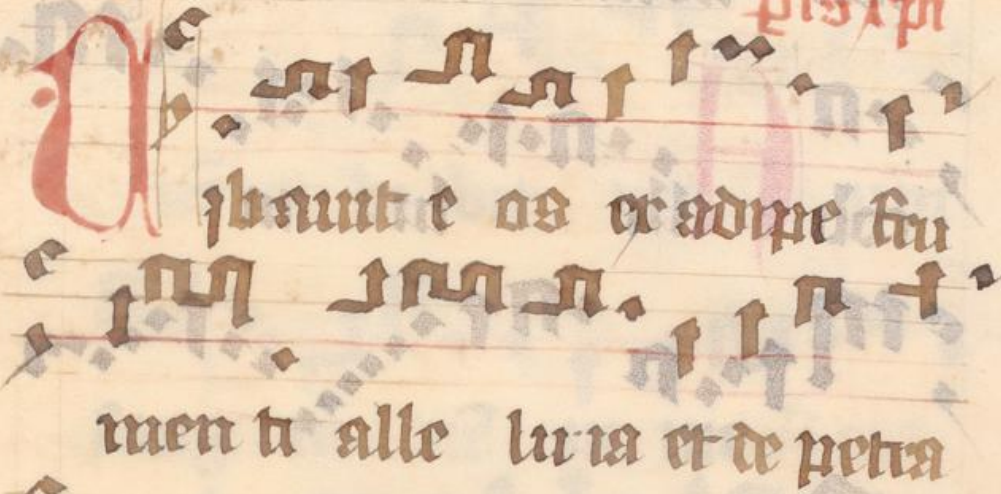 Cibauit e os ex adipe fru
men ti alle lu ia et de petra